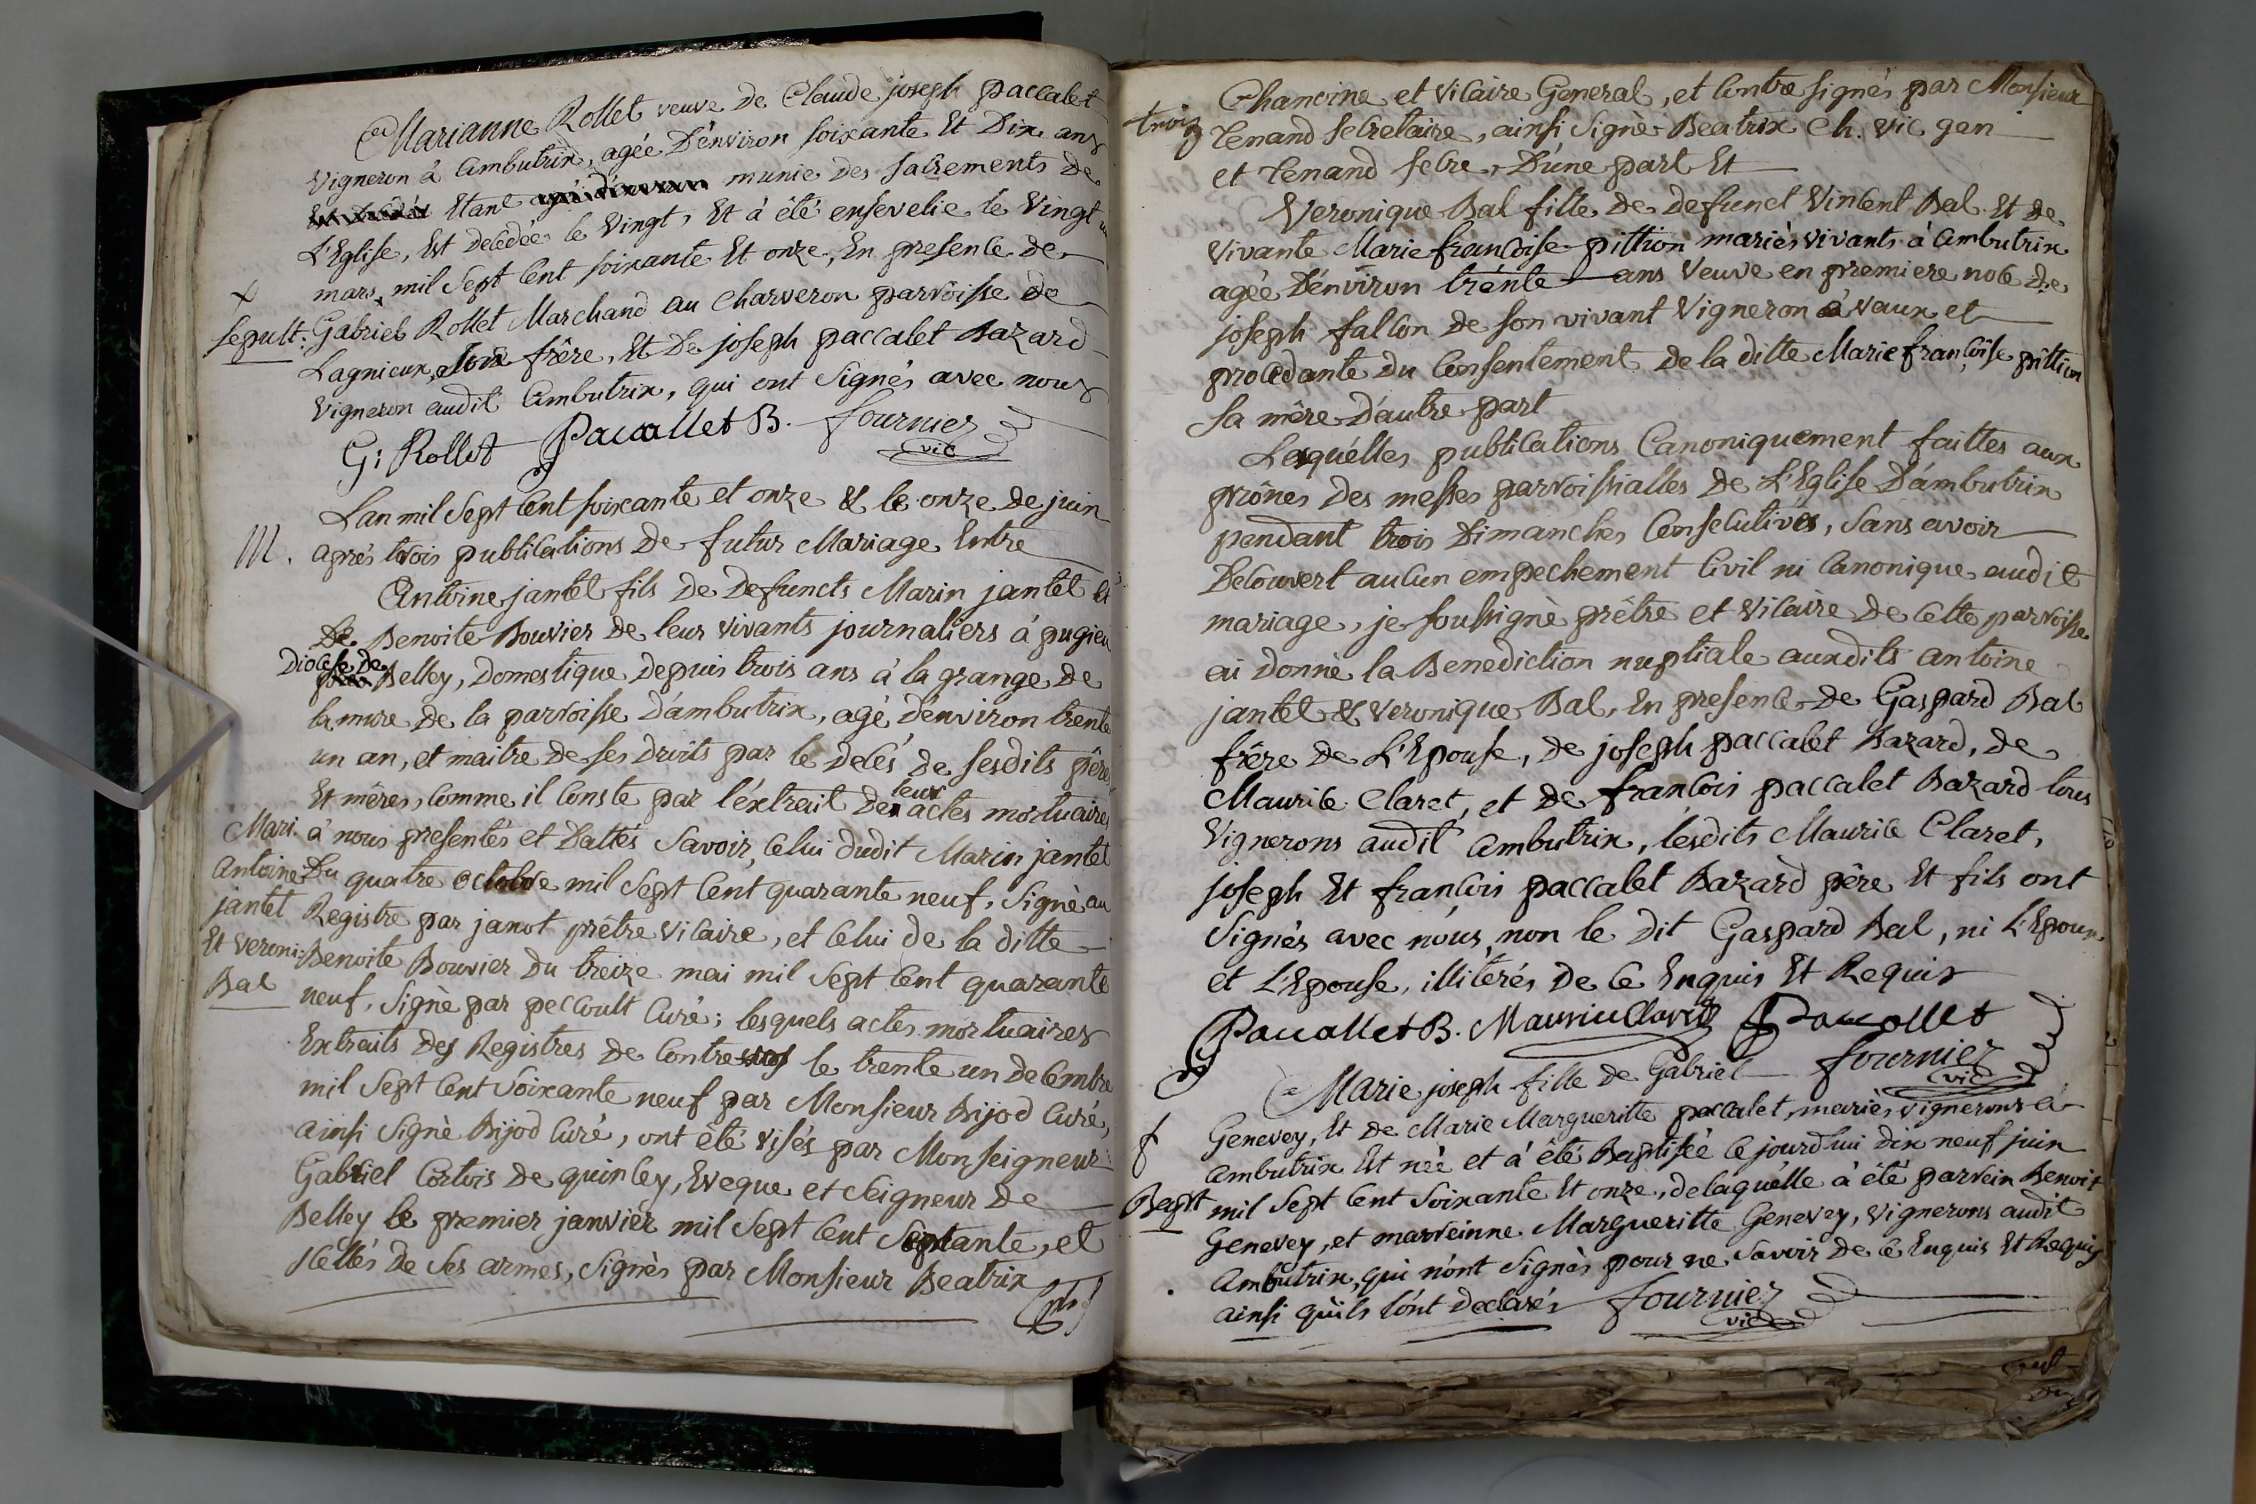 Marianne Rollet veuve de Claude joseph paccalet
vigneron à Ambutrix, agée D'environ soixante Et Dix ans
Etant munie des sacrements de
L'Eglise, Est decedée le vingt, Et à été ensevelie le vingt un
mars mil sept cent soixante Et onze, En presence de
+
sepult: Gabriel Rollet Marchand au charveron parroisse de
Lagnieux, son frêre, Et De joseph paccalet Bazard
vigneron audit Ambutrix, qui ont signés avec nous
G: Rollet Paccallet B. fournier
vic
Lan mil sept cent soixante et onze & le onze de juin
M. aprés trois publications de futur Mariage Entre
Antoine jantet fils de Defuncts Marin jantet et
de Benoite Bouvier de leur vivants journaliers à pugieu
Diocese de Belley, Domestique depuis trois ans à la grange de
lamure de la parroisse D'ambutrix, agè d'environ trente
un an, et maitre de ses droits par le decés de sesdits pêre
Et mêres, comme il conste par l'éxtrait de leurs actes mortuaires
à nous presentés et Dattés savoir, celui dudit Marin jantet
Du quatre octobre mil sept cent quarante neuf, signè au
Registre par janot prêtre vicaire, et celui de la ditte
Benoite Bouvier du treize mai mil sept cent quarante
neuf, signè par peccoult curé; lesquels actes mortuaires
Extraits des Registres de Contrevos le trente un decembre
mil sept cent soixante neuf par Monsieur Bijod curé,
ainsi signè Bijod curé, ont été visés par Monseigneur
Gabriel Cortois de quincey, Eveque et seigneur de
Belley le premier janvier mil sept cent septante, et
scellés de ses armes, signès par Monsieur Beatrix
Mari.
Antoine
jantet
Et veroni:
Bal
Chanoine et vicaire General, et contre signés par Monsieur
trois
Tenand secretaire, ainsi signè Beatrix ch. vic gen
et Tenand secre, D'une part Et
Veronique Bal fille de defunct vincent Bal Et de
vivante Marie françoise pittion mariès vivants à Ambutrix
agèe D'énviron trente ans veuve en premiere noce de
joseph fallon de son vivant vigneron à vaux et
procedante du consentement de la ditte Marie françoise pittion
sa mêre d'autre part
Lesquélles publications canoniquement faittes aux
prônes des messes parroissialles de L'Eglise D'ambutrix
pendant trois Dimanches consecutives, sans avoir
Decouvert aucun empechement civil ni canonique audit
mariage, je soussignè prêtre et vicaire de cette parroisse
ai donnè la Benediction nuptiale auxdits antoine
jantet & veronique Bal, En presence de Gaspard Bal
frêre de L'Epouse, de joseph paccalet Bazard, de
Maurice Claret, et de francois paccalet Bazard tous
vignerons audit Ambutrix, lesdits Maurice Claret,
joseph Et françois paccalet Bazard pêre Et fils ont
signés avec nous, non le dit Gaspard Bal, ni L'Epoux
et L'Epouse, illiterés de ce Enquis Et Requis
Paccallet B. Maurice Claret Paccollet
fournier
vic
Marie joseph fille de Gabriel
Genevey, Et de Marie Margueritte paccalet, mariès, vignerons à
Ambutrix Est nèe et à été Baptisèe ce jourd'hui dix neuf juin
Bapt mil sept cent soixante Et onze, de laquélle à été parrein Benoit
Genevey, et marreinne Margueritte Genevey, vignerons audit
Ambutrix, qui n'ont signès pour ne savoir de ce Enquis Et Requis
ainsi qu'ils l'ónt declaré fournier
vic